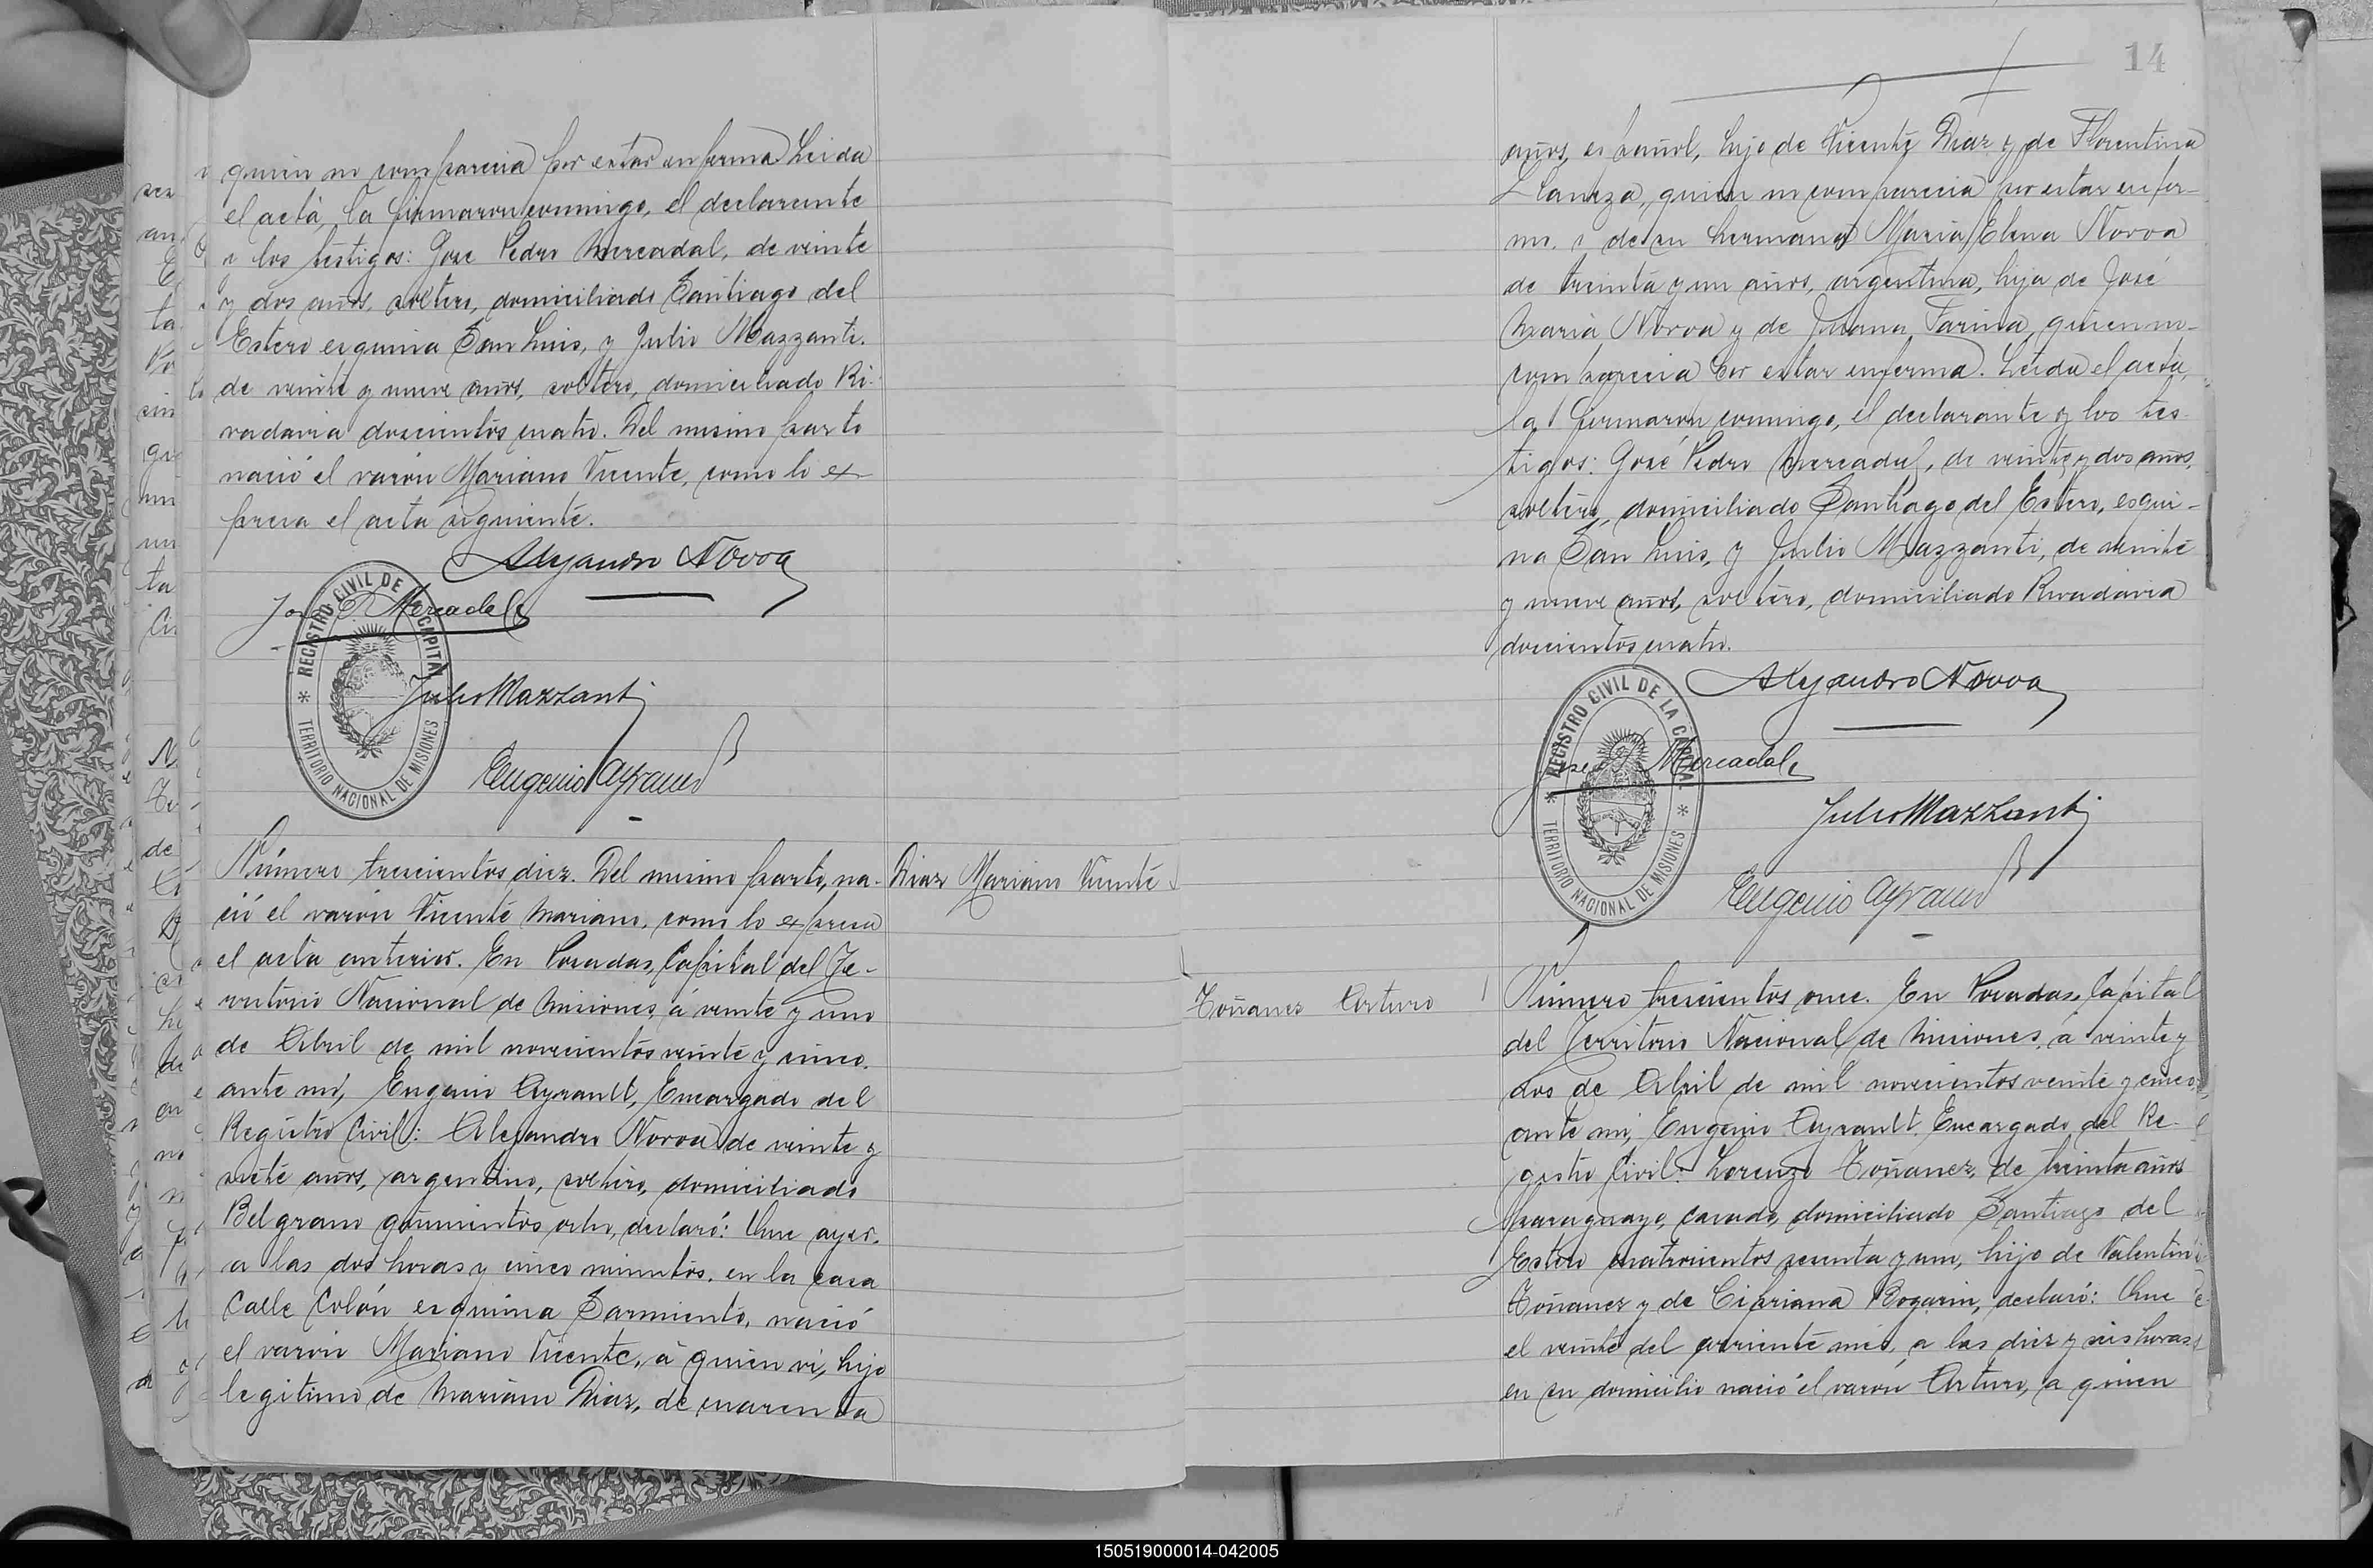 quien no comparecia por estar enferma. Leida
el acta, la firmaron conmigo, el declarante
y los testigos: José Pedro Mercadal, de veinte
y dos años, soltero, domiciliado Santiago del
Estero esquina San Luis, y Julio Mazzanti,
de veinte y nueve años, soltero, domiciliado Ri-
vadavia doscientos cuatro. Del mismo parto
nació el varón Mariano Vicente, como lo ex-
presa el acta siguiente.
Alejandro Novoa
José P. Mercadal
REGISTRO CIVIL DE LA CAPITAL
TERRITORIO NACIONAL DE MISIONES
Julio Mazzanti
Eugenio Ayrault
Número trescientos diez. Del mismo parto, na-
Diaz Mariano Vicente
ció el varón Vicente Mariano, como lo expresa
el acta anterior. En Posadas, Capital del Te-
rritorio Nacional de Misiones, á veinte y uno
de Abril de mil novecientos veinte y cinco,
ante mi, Eugenio Ayrault, Encargado del
Registro Civil: Alejandro Novoa de veinte y
siete años, argentino, soltero, domiciliado
Belgrano quinientos ocho, declaró: Que ayer,
a las dos horas y cinco minutos, en la casa
Calle Colón esquina Sarmiento, nació
el varón Mariano Vicente, á quien vi, hijo
legitimo de Mariano Diaz, de cuarenta
14
años, español, hijo de Vicente Diaz y de Florentina
Llaneza, quien no comparecia por estar enfer-
mo, y de su hermana Maria Elena Novoa
de treinta y un años, argentina, hija de José
Maria Novoa y de Juana Farina, quien no
comparecia por estar enferma. Leida el acta,
la firmaron conmigo, el declarante y los tes-
tigos: José Pedro Mercadal, de veinte y dos años,
soltero, domiciliado Santiago del Estero, esqui-
na San Luis, y Julio Mazzanti, de veinte
y nueve años, soltero, domiciliado Rivadavia
doscientos cuatro.
Alejandro Novoa
José P. Mercadal
REGISTRO CIVIL DE LA CAPITAL
TERRITORIO NACIONAL DE MISIONES
Julio Mazzanti
Eugenio Ayrault
Toñanez Arturo
Número trescientos once. En Posadas, Capital
del Territorio Nacional de Misiones, á veinte y
dos de Abril de mil novecientos veinte y cinco,
ante mi, Eugenio Ayrault, Encargado del Re-
gistro Civil: Lorenzo Toñanez, de treinta años
paraguayo, casado, domiciliado Santiago del
Estero cuatrocientos sesenta y uno, hijo de Valentin
Toñanez y de Cipriana Bogarin, declaró: Que
el veinte del corriente mes, a las diez y seis horas,
en su domicilio nació el varón Arturo, a quien
150519000014-042005